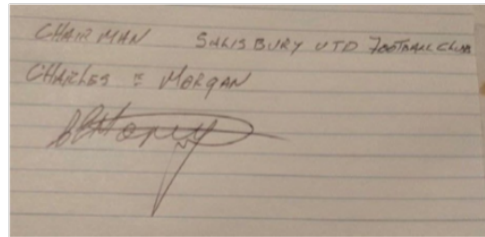 CHAIRMAN SALISBURY UTD FOOTBALL CLUB
CHARLES MORGAN